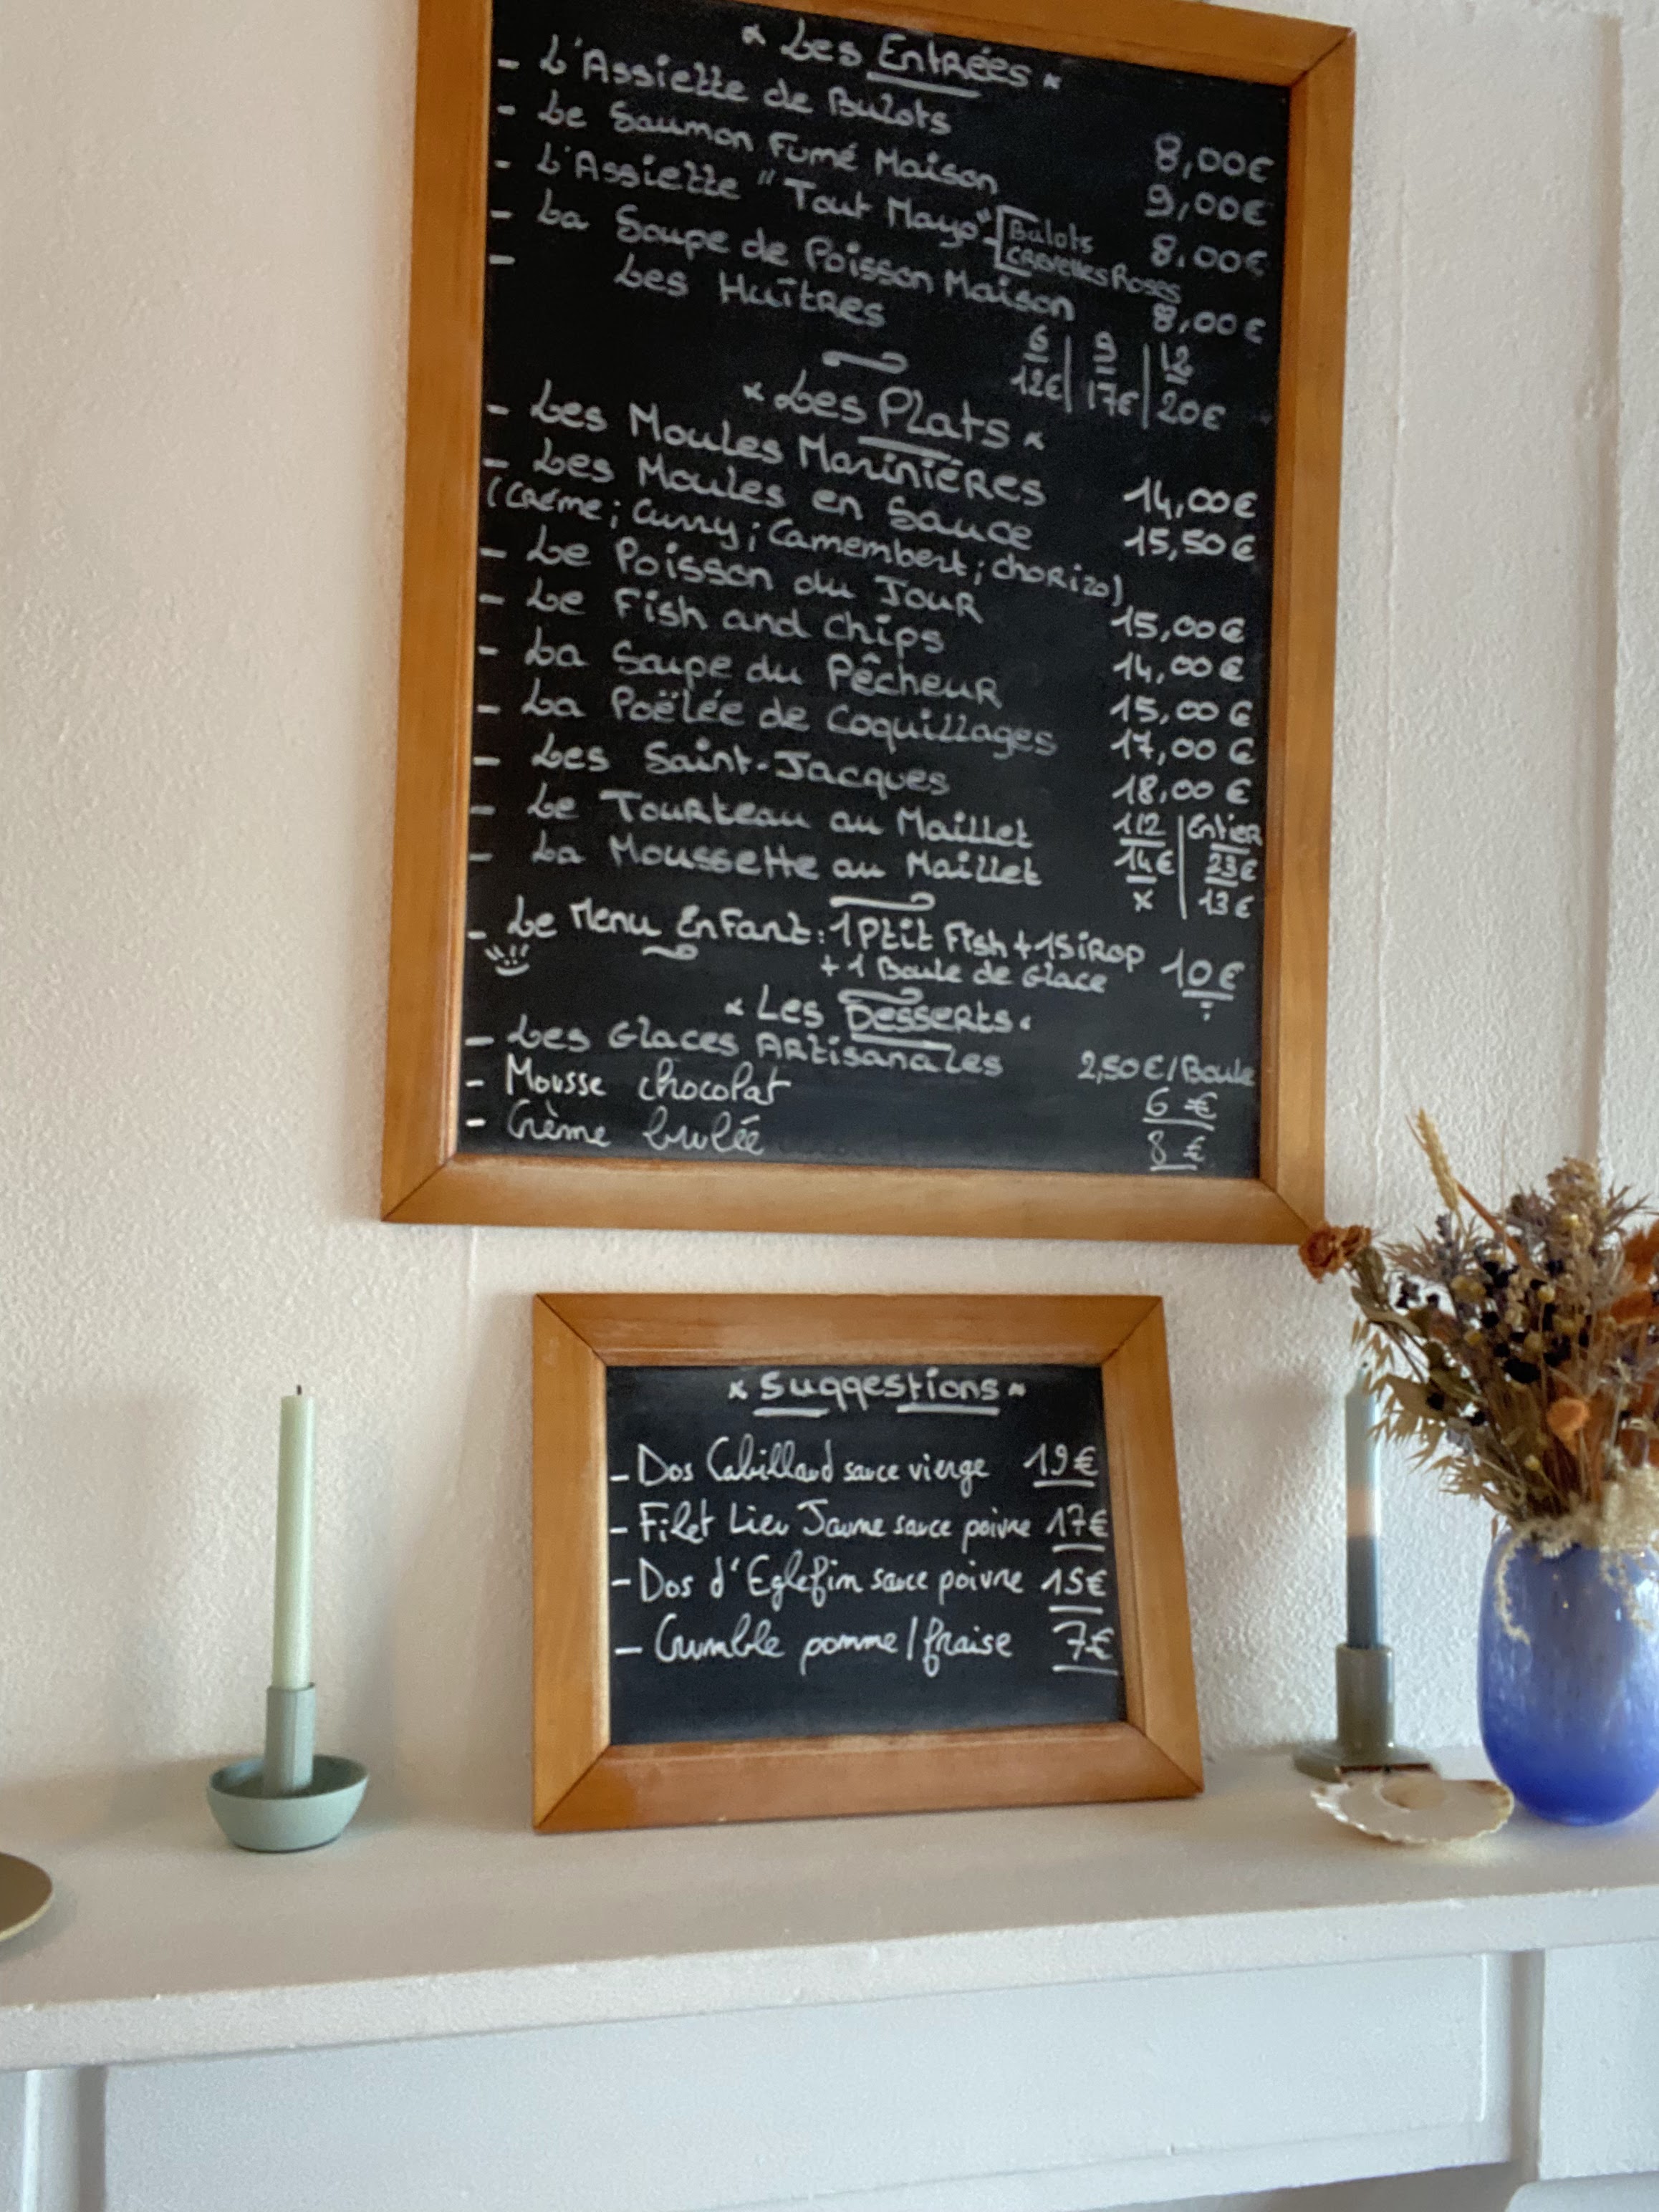 × Les Entrées ×
- L'Assiette de Bulots 8,00€
- Le Saumon Fumé Maison 9,00€
- L'Assiette "Tout Mayo" [Bulots 8.00€
Crevettes Roses
- La Soupe de Poisson Maison 8,00€
- Les Huîtres 6 | 9 | 12
12€ | 17€ | 20€
× Les Plats ×
- Les Moules Marinières 14,00€
- Les Moules en Sauce 15,50€
(Crème ; Curry ; Camembert ; chorizo)
- Le Poisson du Jour 15,00€
- Le Fish and Chips 14,00€
- La Soupe du Pêcheur 15,00€
- La Poëlée de Coquillages 17,00€
- Les Saint-Jacques 18,00€
1/2 | Entier
- Le Tourteau au Maillet 14€ | 23€
- La Moussette au Maillet x | 13€
- Le Menu Enfant : 1 Ptit Fish + 1 Sirop
+ 1 Boule de Glace 10€
× Les Desserts ×
- Les Glaces Artisanales 2,50€/Boule
- Mousse chocolat 6 €
- Crème brulée 8 €
× Suggestions ×
- Dos Cabillaud sauce vierge 19€
- Filet Lieu Jaune sauce poivre 17€
- Dos d'Eglefin sauce poivre 15€
- Crumble pomme/fraise 7€